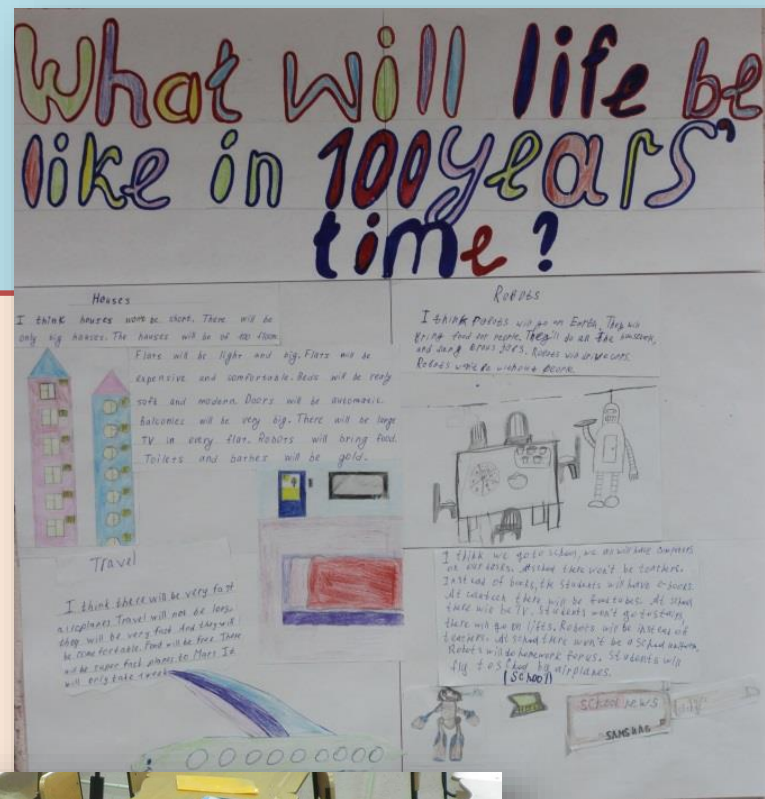 What will life be
like in 100 years'
time?
Houses
I think houses won't be short. There will be
only big houses. The houses will be of 100 floor.
Flats will be light and big. Flats will be
expensive and comfortable. Beds will be realy
soft and modern. Doors will be automatic.
balconies will be very big. There will be large
TV in every flat. Robots will bring food.
Toilets and bathes will be gold.
Robots
I think robots will go on Earth. They will
bring food for people. They'll do all the housework,
and jobs. Robots will drive cars.
Robots without people.
Travel
I think there will be very fast
airplanes. Travel will not be long,
they will be very fast. And they will
be comfortable. Food will be free. There
will be super fast planes to Mars. It
will only take 1 week
I think we go to school, we all will have computers
on our desks. At school there won't be teachers.
Instead of books, the students will have e-books.
At there will be. At school
there will be TV. Students won't go upstairs,
there will go on lifts. Robots will be instead of
teachers. At school there won't be a school uniform.
Robots will do homework for us. Students will
fly to school by airplanes.
(School)
school news
SAMSHAG